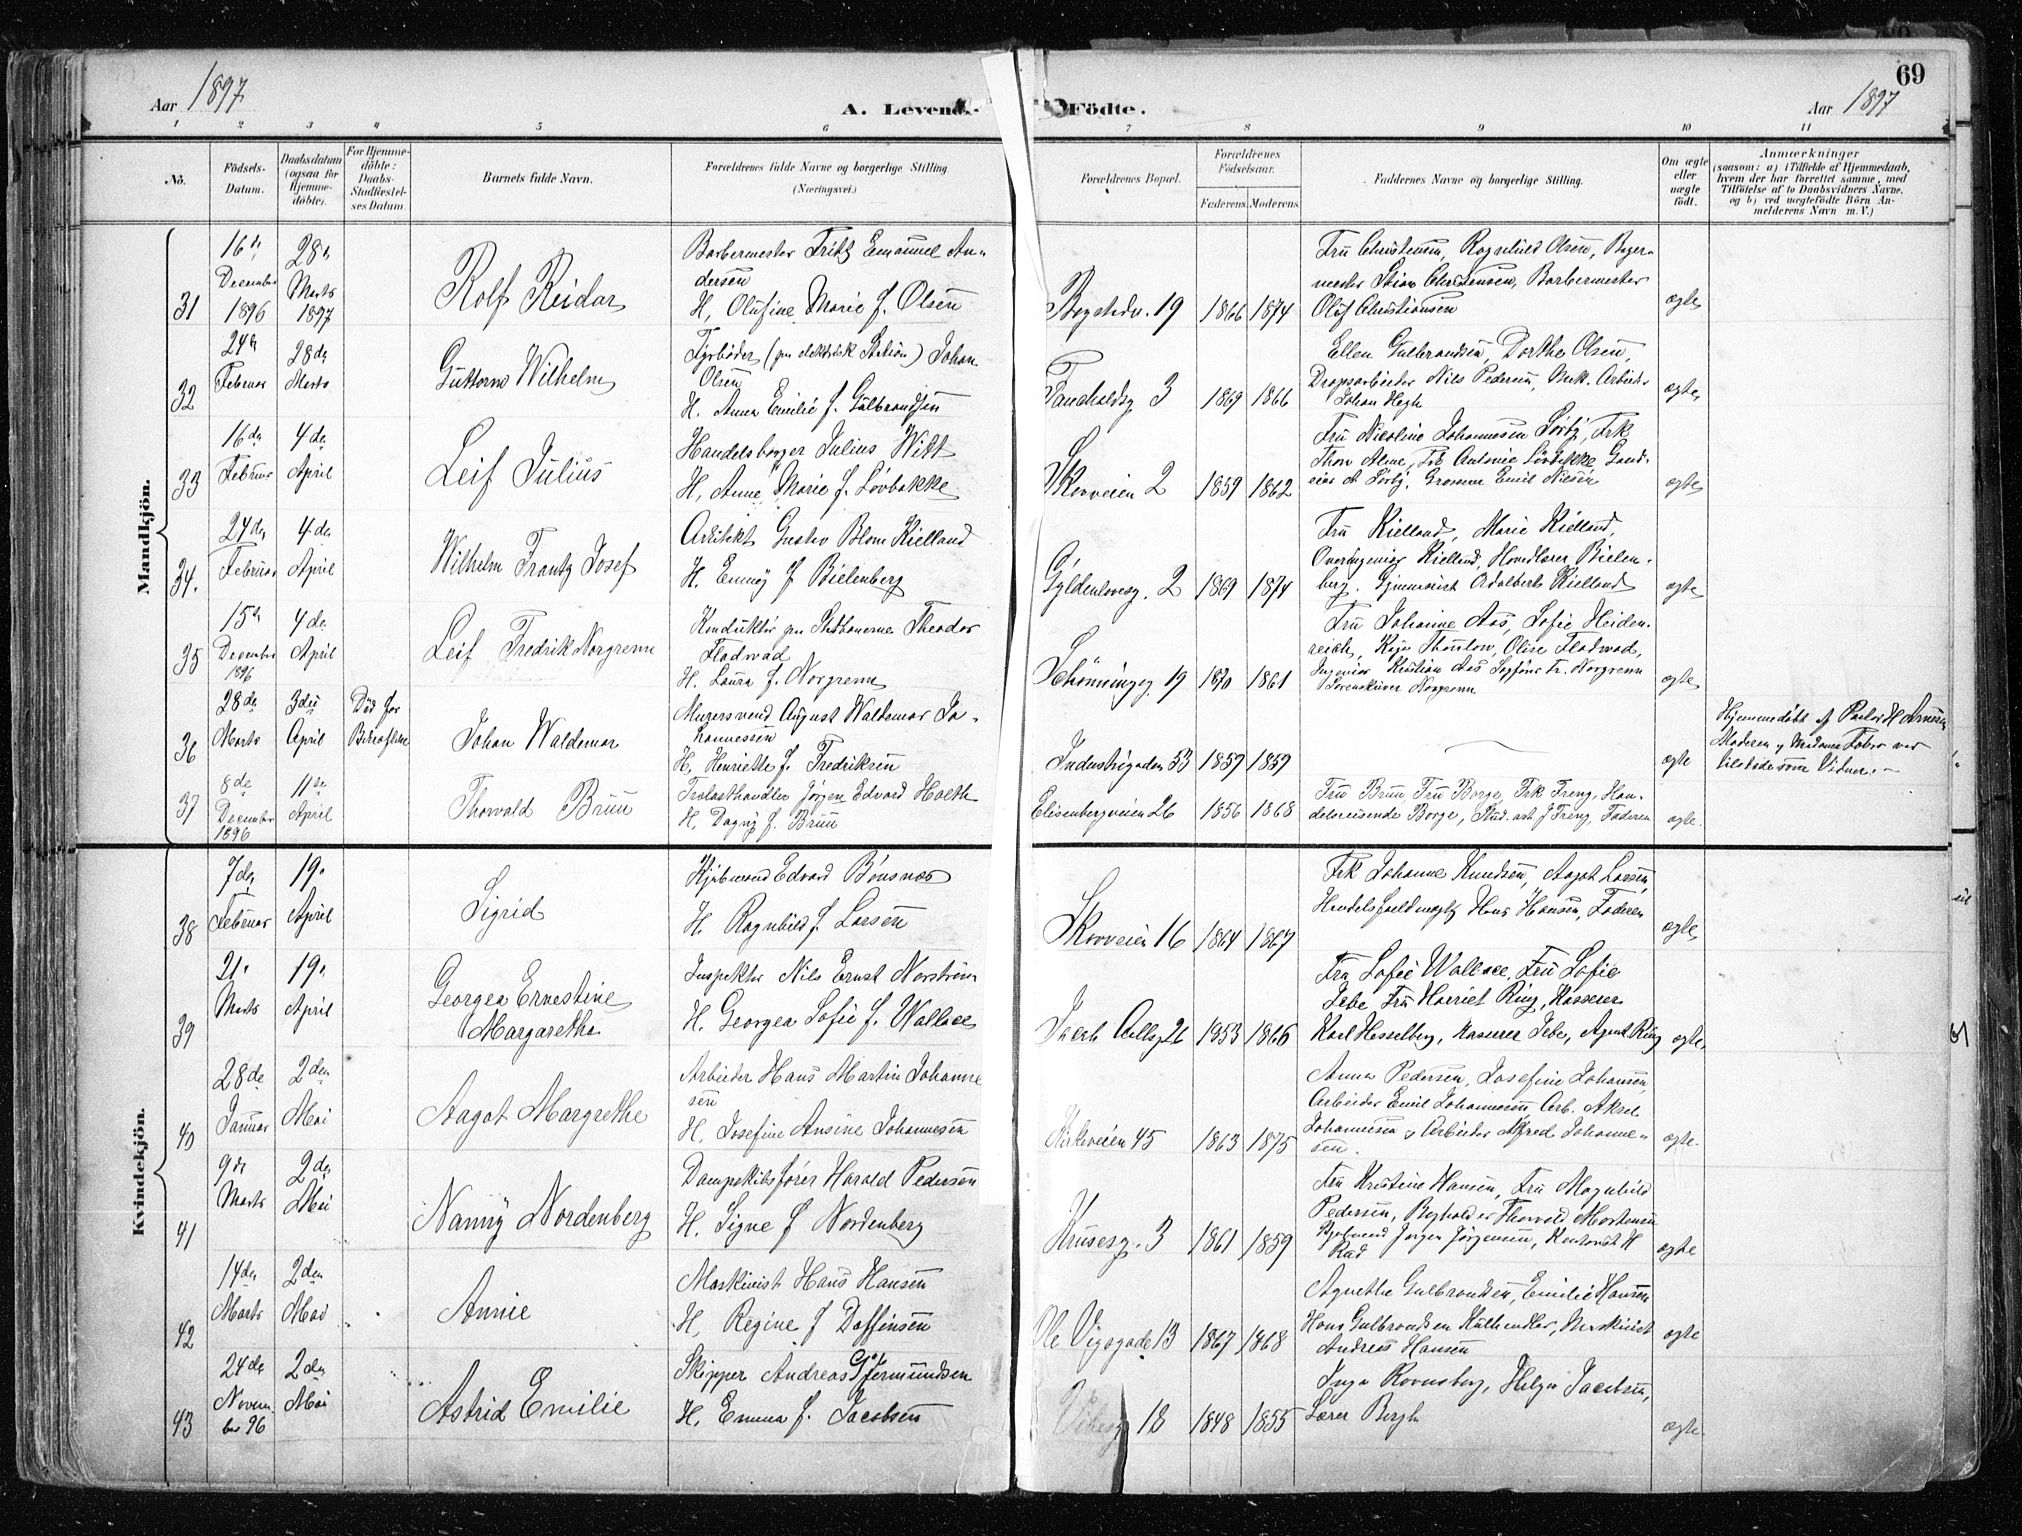 Aar 1897
A. Levende Födte.
Aar 1897
69
1 2 3 4 5 6 7 8 9 10 11
No.
Födsels-Datum.
Daabsdatum (ogsaa for Hjemme-döbte).
For Hjemme-döbte: Daabs-Stadfæstelses Datum.
Barnets fulde Navn.
Forældrenes fulde Navne og borgerlige Stilling (Næringsvei.)
Forældrenes Bopæl.
Forældrenes Födselsaar.
Faderens. Moderens.
Faddernes Navne og borgerlige Stilling.
Om ægte eller uægte født.
Anmærkninger
(saasom: a) i Tilfælde af Hjemmedaab,
hvem der har forrettet samme, med
Tilföielse af to Daabsvidners Navne,
og b) ved uægtefödte Börn An-
melderens Navn m. V.)
Mandkjön.
31
16de December 1896
28de Marts 1897
Rolf Reidar
Barbermester Fritz Emanuel An-
dersen
H. Olufine Marie f. Olsen
19
1866 1874
Fru Christensen, Ragnhild Olsen, Bager-
mester Christensen, Barbermester
Oluf Christiansen
ægte
32
24de Februar
28de Marts
Guttorm Wilhelm
Fyrbøder (paa elektrisk Station) Johan
Olsen
H. Anna Emilie f. Gulbrandsen
3
1869 1866
Ellen Gulbrandsen, Dorthe Olsen,
Nils Pedersen, Mek. Arbeider
Johan
ægte
33
16de Februar
4de April
Leif Julius
Handelsborger Julius Witt
H. Anne Marie f. Løvbakke
Skovveien 2
1859 1862
Fru Nicoline Johannesen Sørby, Frk
Frk Antonie Løvbakke
Sørby, Grosserer Emil Nilsen
ægte
34.
24de Februar
4de April
Wilhelm Frantz Josef
Arkitekt Gustav Blom Kielland
H. Emmy f Bielenberg
Gyldenløvesg. 2
1869 1874
Fru Kielland, Marie Kielland,
Overingeniør Kielland, Bielen-
berg. Gymnasist Adalbert Kielland
ægte
35
15de December 1896
4de April
Leif Fredrik Norgrenn
Konduktør paa Statsbanerne Theodor
Fladvad
H. Laura f. Norgrenn
Schønningsg. 19
1870 1861
Fru Johanne Aas, Sofie Heiden-
reich, Thurlow, Olise Fladvad,
Ingeniør Kristian Aas Norgrenn
Sorenskriver Norgrenn
ægte
36
28de Marts
3die April
Død før Bekræftelse
Johan Waldemar
Murersvend August Waldemar Jo-
hannessen
H. Henriette f. Fredriksen
Industrigaden 53
1859 1859
ægte
Hjemmedøbt af Pastor H Arnesen
Moderen og Madame Faber var
tilstede som Vidner.
37
8de December 1896
11te April
Thorvald Bruu
Trælasthandler Jörgen Edvard Holth
H. Dagny f. Bruu
Elisenbergveien 26
1856 1868
Fru Bruu, Fru Borge, Frk Freng, Han-
delsreisende Borge, Stud. art J Freng, Faderen
ægte.
Kvindekjön.
38
7de Februar
19. April
Sigrid
Kjøbmand Edvard Bønsnæs
H. Ragnhild f. Larsen
Skovveien 16
1864 1867
Frk Johanne Knudsen, Aagot Larsen,
Handelsfuldmægtig Hans Hansen, Faderen
ægte
39
21. Marts
19. April
Georgea Ernestine
Margaretha
Inspektør Nils Ernst Norstrøm
H. Georgea Sofie f. Wallace
Jacob Aallsg 26
1853 1866
Fru Sofie Wallace, Fru Sofie
Jebe Fru Harriet Ring, Kasserer
Karl Hesselberg, Kasserer Jebe, Agent Ring
ægte.
40
28de Januar
2den Mai
Aagot Margrethe
Arbeider Hans Martin Johanne
sen
H. Josefine Ansine Johannesen
Kirkeveien 45
1863 1875
Anna Pedersen, Josefine Johansen,
Arbeider Emil Johannesen, Arb. Aksel
Johannesen og Arbeider Alfred Johanne-
sen.
ægte.
41
9de Marts
2den Mai
Nanny Nordenberg
Dampskibsfører Harald Pedersen
H. Signe f Nordenberg
Krusesg. 3
1861 1859
Fru Kristine Hansen, Fru Magnhild
Pedersen, Boghold er Thorvald Mortensen
Jørgen Jørgensen, Kontorist H
Rad
ægte
42
14de Marts
2den Mai
Annie
Maskinist Hans Hansen
H. Regine f Daffinsen
Ole Vigsgade 13
1867 1868
Agnethe Gulbrandsen, Emilie Hansen
Hans Gulbrandsen Kulhandler, Maskinist
Andreas Hansen
ægte
43
24de November 96
2den Mai
Astrid Emilie
Skipper Andreas Gjermundsen
H. Emma f. Jacobsen
Vibesg 18
1848 1855
Inga Ravnsborg, Helga Jacobsen,
Lærer Bergh
ægte.